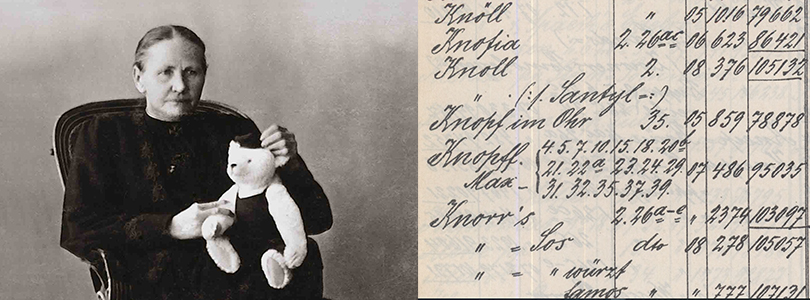 Knöll " 05 1016 79662
Knofia 2. 26a-c 06 623 86421
Knoll 2. 08 376 105132
" (:/. Santyl =:)
Knopf im Ohr 35. 05 859 78878
Knopff. 4.5.7.10.15.18.20b
21.22a 23.24.29. 07 486 95035
Max - 31.32.35.37.39.
Knorr's 2. 26a-e " 2374 103097
" = Sos dto 08 278 105057
" = " würzt
famos " " 777 107131